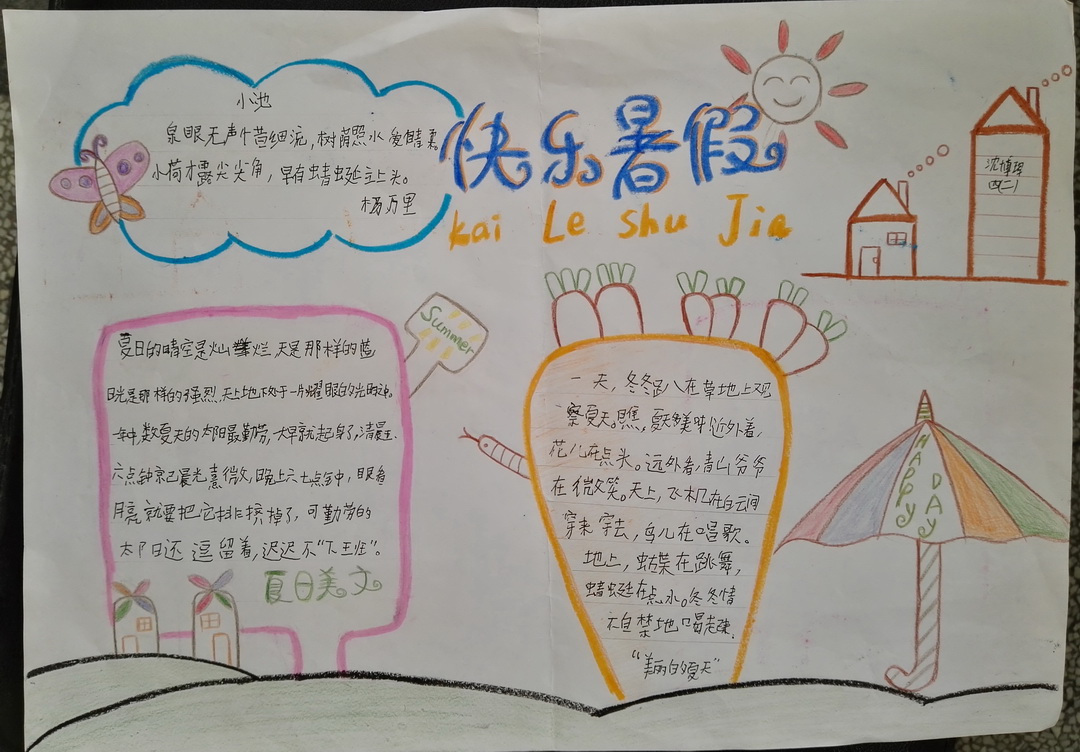 小池
泉眼无声惜细流，树荫照水爱晴柔。
小荷才露尖尖角，早有蜻蜓立上头。
杨万里
快乐暑假
kai Le shu Jia
四(二)
Summer
夏日的晴空是灿烂，天是那样的蓝
日光是那样的强烈，天上地下处于一片耀眼的光明之中。
一年中，数夏天的太阳最勤劳，一大早就起身了，清晨
六点钟就已晨光熹微，晚上六七点钟，眼看
月亮就要把它排挤掉了，可勤劳的
太阳还逗留着，迟迟不“下班”。
夏日美文
一天，冬冬趴在草地上观
察夏天。瞧，夏天多美呀！近处看，
花儿在点头。远处看，青山爷爷
在微笑。天上，飞机在白云间
穿来穿去，鸟儿在唱歌。
地上，蝴蝶在跳舞，
蜻蜓在点水。冬冬情
不自禁地唱起来，
“美丽的夏天”
HAPPY
DAY